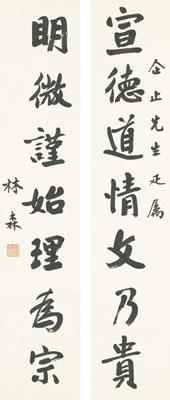 企止先生正属
宣德道情文乃貴
明微謹始理為宗
林森